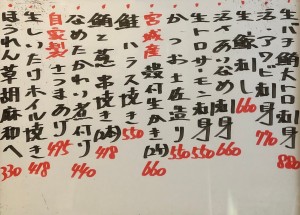 生バチ鮪大トロ刺身 880
活〆アワビ刺身 770
生鯨刺し 660
活〆あいなめ刺身 660
生トロサーモン刺身 550
かつお土佐造り 550
宮城産殻付生かき(2ケ) 660
鮭ハラス焼き 550
鮪と葱串焼き(2本) 418
なめたかれい煮付け 440
自家製さつまあげ 495
生しいたけホイル焼き 418
ほうれん草胡麻和へ 330